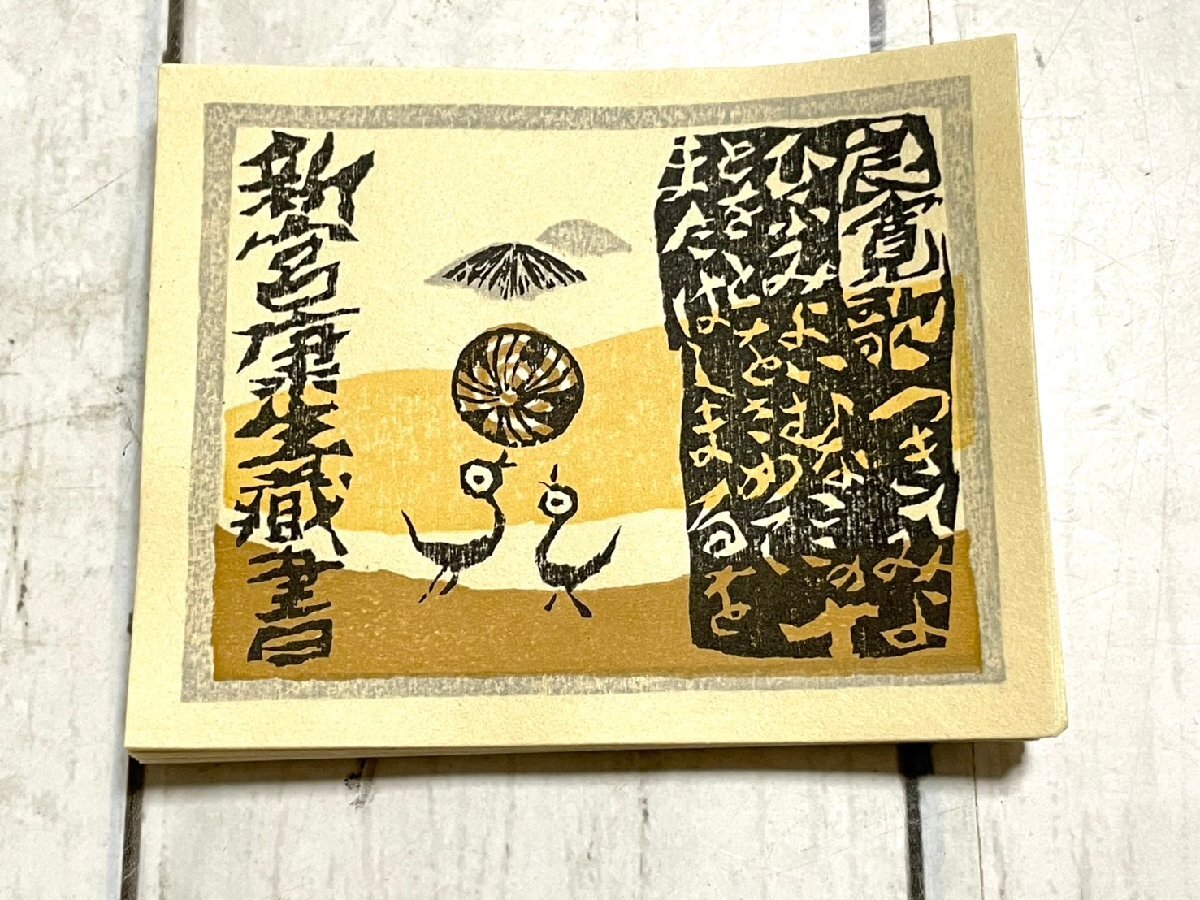 良寛歌 つきてみよ
ひふみよいむなこゝの十
とをとをさめて
またはしまるを
新宮康生藏書